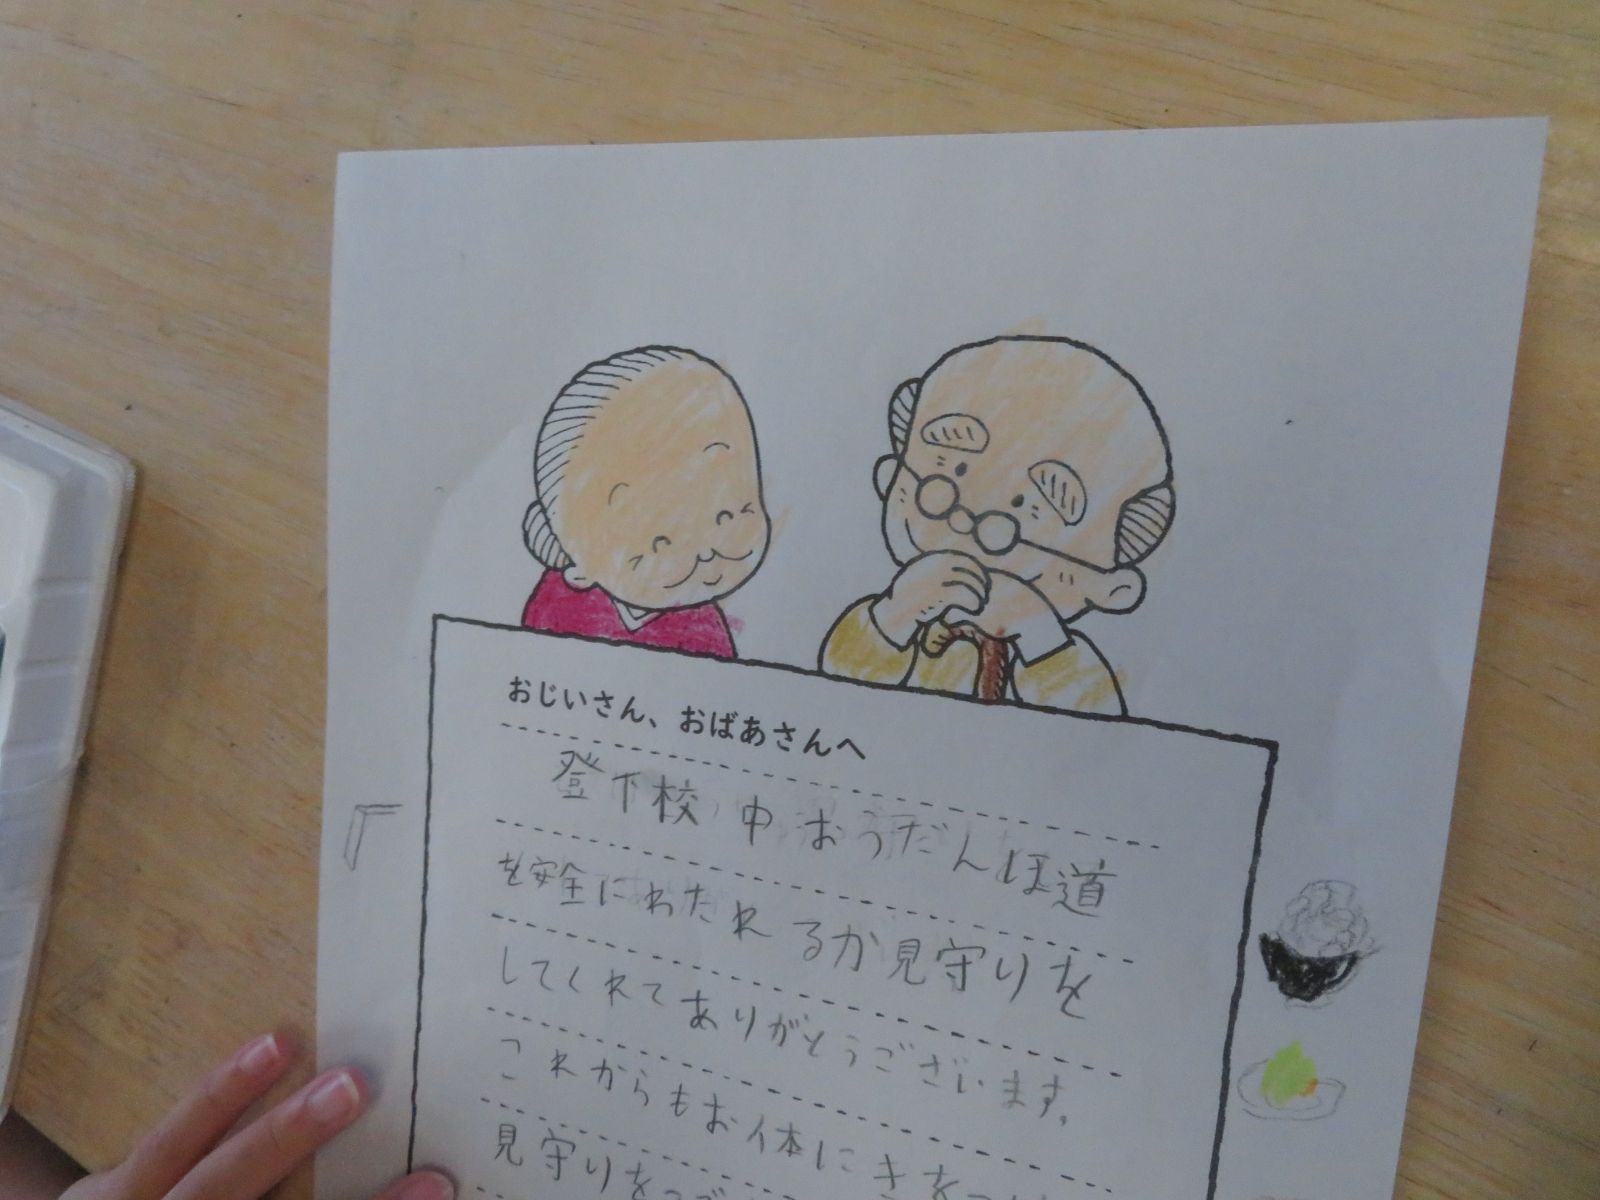 おじいさん、おばあさんへ
登下校中おうだんほ道
を安全にわたれるか見守りを
してくれてありがとうございます。
これからもお体にきをつけ
見守りをつづ